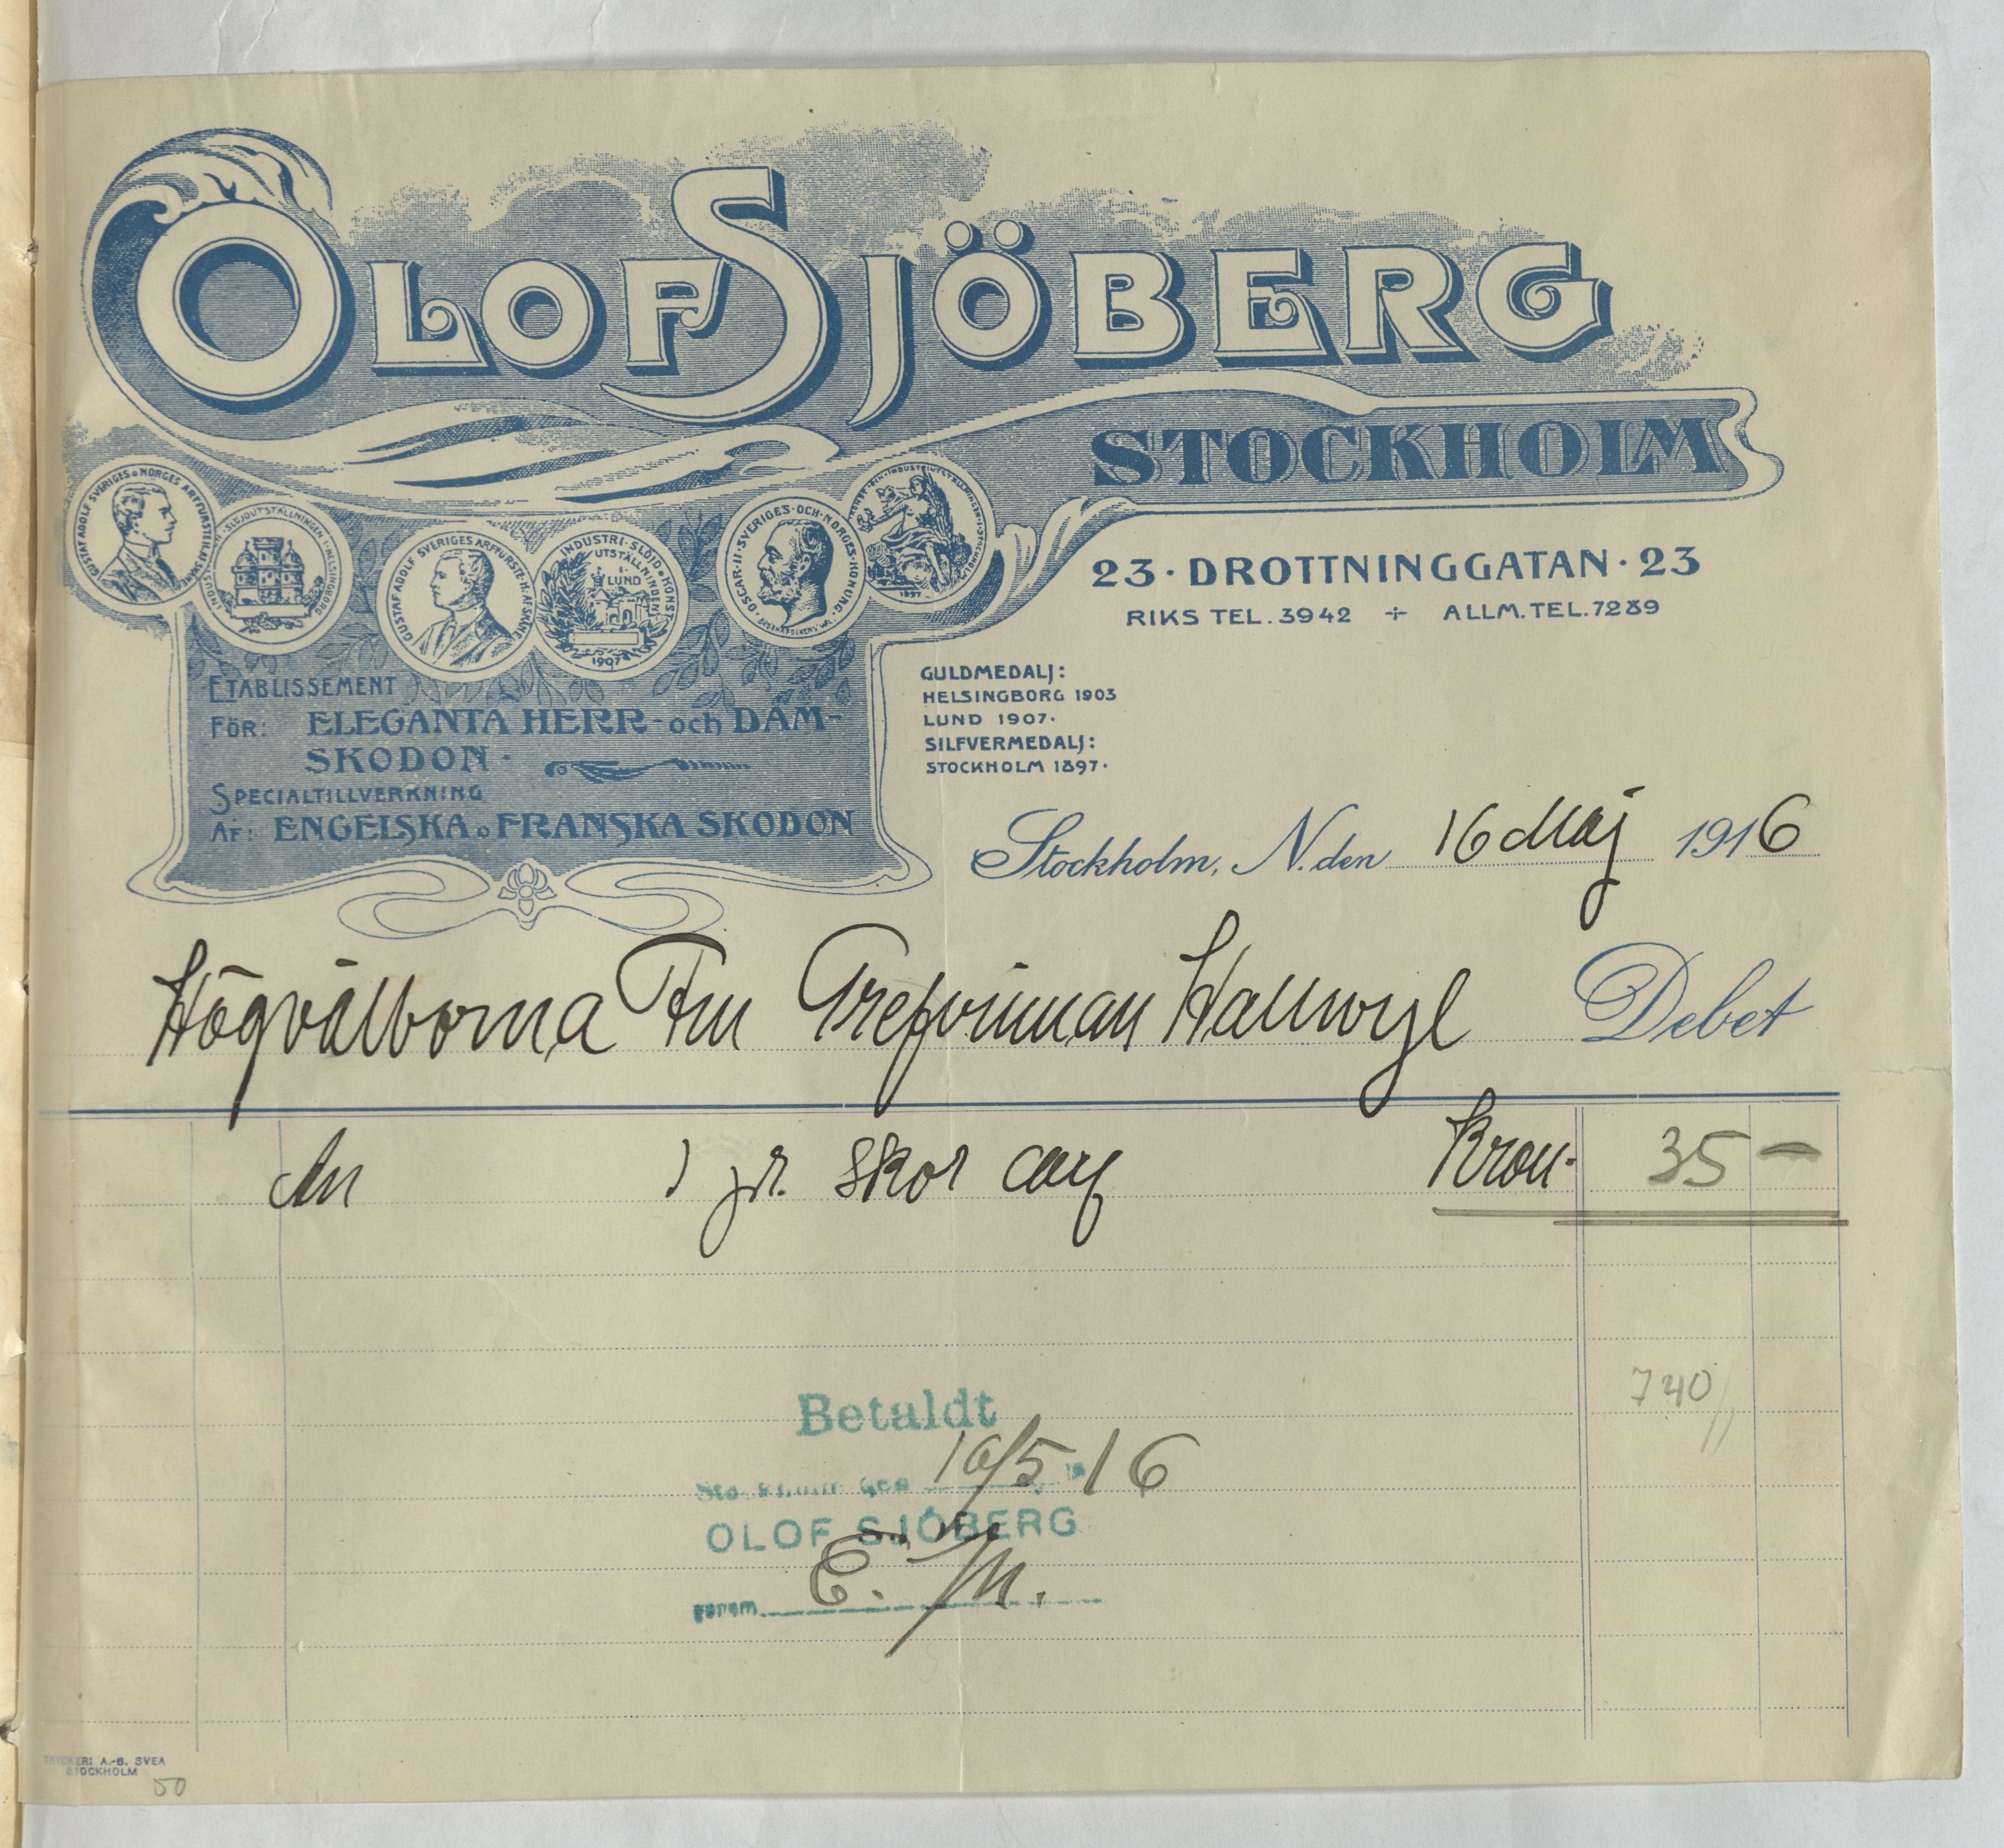 OLOF SJÖBERG
STOCKHOLM
23·DROTTNINGGATAN·23
RIKS TEL. 3942 ÷ ALLM. TEL. 7289
GUSTAF ADOLF SVERIGES o NORGES ARFFURSTE
INDUSTRI- SLÖJDUTSTÄLLNINGEN I HELSINGBORG
GUSTAF ADOLF SVERIGES ARFFURSTE H. AF SKÅNE
INDUSTRI- SLÖJD- o KONST
UTSTÄLLNINGEN
I
LUND
1907
OSCAR·II·SVERIGES·OCH·NORGES·KONUNG·
1897
ETABLISSEMENT
FÖR: ELEGANTA HERR- och DAM-
SKODON·
SPECIALTILLVERKNING
AF: ENGELSKA o FRANSKA SKODON
GULDMEDALJ:
HELSINGBORG 1903
LUND 1907·
SILFVERMEDALJ:
STOCKHOLM 1897·
Stockholm, N. den 16 Maj 1916
Högvälborna Fru Grefvinnan Hallwyl Debet
An 1 pr. skor Kron. 35 –
740
Betaldt
Stockholm den 16/5 16
OLOF SJÖBERG
genom E. M.
TRYCKERI A.-B. SVEA
STOCKHOLM
50